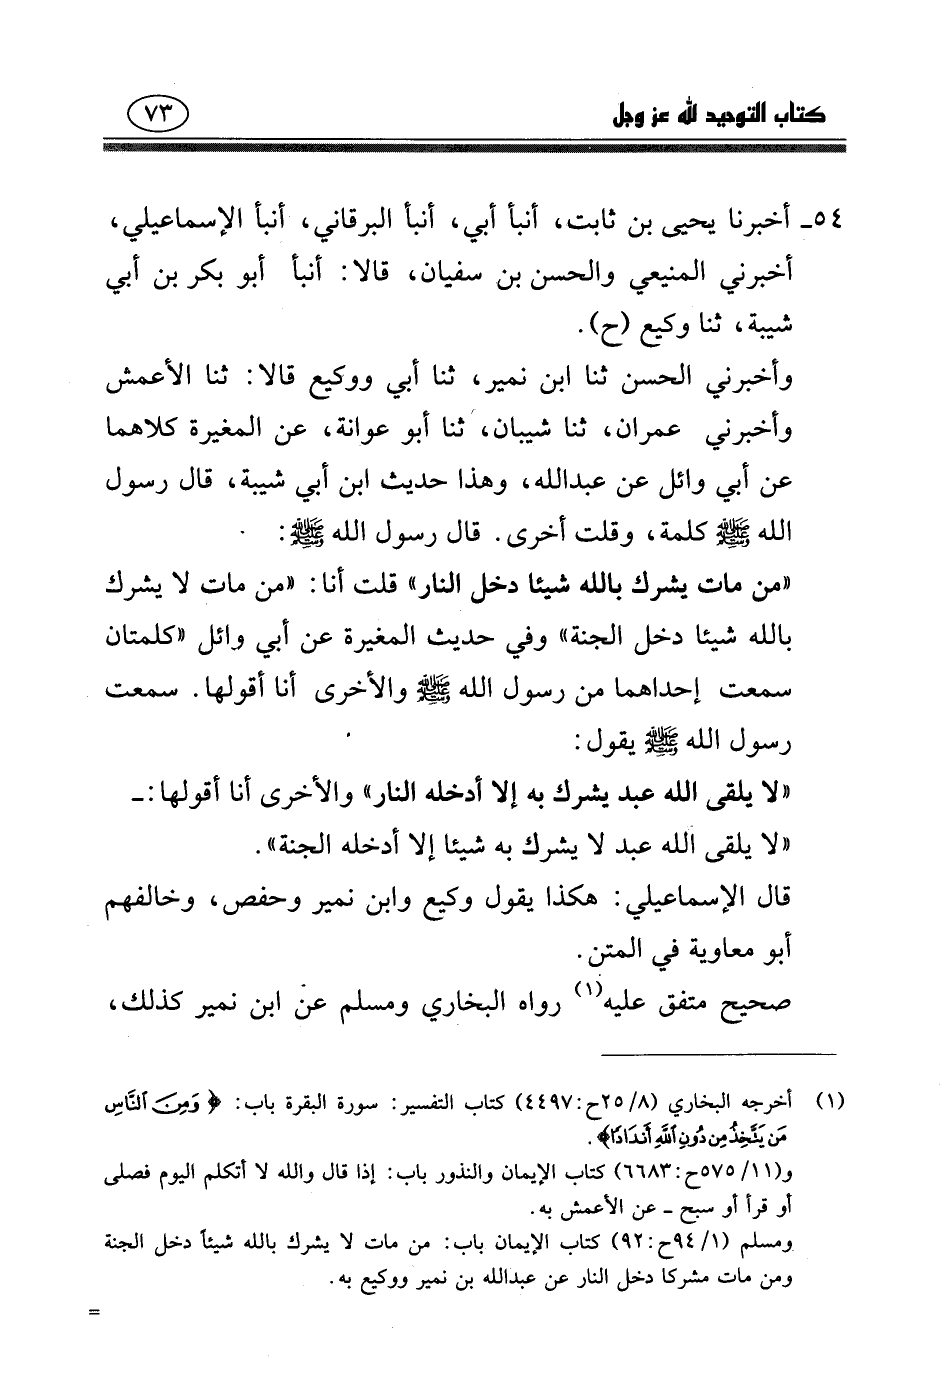 كتاب التوحيد لله عز وجل
٧٣
٥٤ـ أخبرنا يحيى بن ثابت، أنبأ أبي، أنبأ البرقاني، أنبأ الإسماعيلي،
أخبرني المنيعي والحسن بن سفيان، قالا: أنبأ أبو بكر بن أبي
شيبة، ثنا وكيع (ح).
وأخبرني الحسن ثنا ابن نمير، ثنا أبي ووكيع قالا: ثنا الأعمش
وأخبرني عمران، ثنا شيبان، ثنا أبو عوانة، عن المغيرة كلاهما
عن أبي وائل عن عبدالله، وهذا حديث ابن أبي شيبة، قال رسول
الله ﷺ كلمة، وقلت أخرى. قال رسول الله ﷺ:
«من مات يشرك بالله شيئا دخل النار» قلت أنا: «من مات لا يشرك
بالله شيئا دخل الجنة» وفي حديث المغيرة عن أبي وائل «كلمتان
سمعت إحداهما من رسول الله ﷺ والأخرى أنا أقولها. سمعت
رسول الله ﷺ يقول:
«لا يلقى الله عبد يشرك به إلا أدخله النار» والأخرى أنا أقولها:ـ
«لا يلقى الله عبد لا يشرك به شيئا إلا أدخله الجنة».
قال الإسماعيلي: هكذا يقول وكيع وابن نمير وحفص، وخالفهم
أبو معاوية في المتن.
صحيح متفق عليه(١) رواه البخاري ومسلم عن ابن نمير كذلك،
(١) أخرجه البخاري (٢٥/٨ح:٤٤٩٧) كتاب التفسير: سورة البقرة باب: ﴿وَمِنَ ٱلنَّاسِ
مَن يَتَّخِذُ مِن دُونِ ٱللَّهِ أَندَادًا﴾.
و(٥٧٥/١١ح:٦٦٨٣) كتاب الإيمان والنذور باب: إذا قال والله لا أتكلم اليوم فصلى
أو قرأ أو سبح ـ عن الأعمش به.
ومسلم (٩٤/١ح:٩٢) كتاب الإيمان باب: من مات لا يشرك بالله شيئاً دخل الجنة
ومن مات مشركا دخل النار عن عبدالله بن نمير ووكيع به.
=